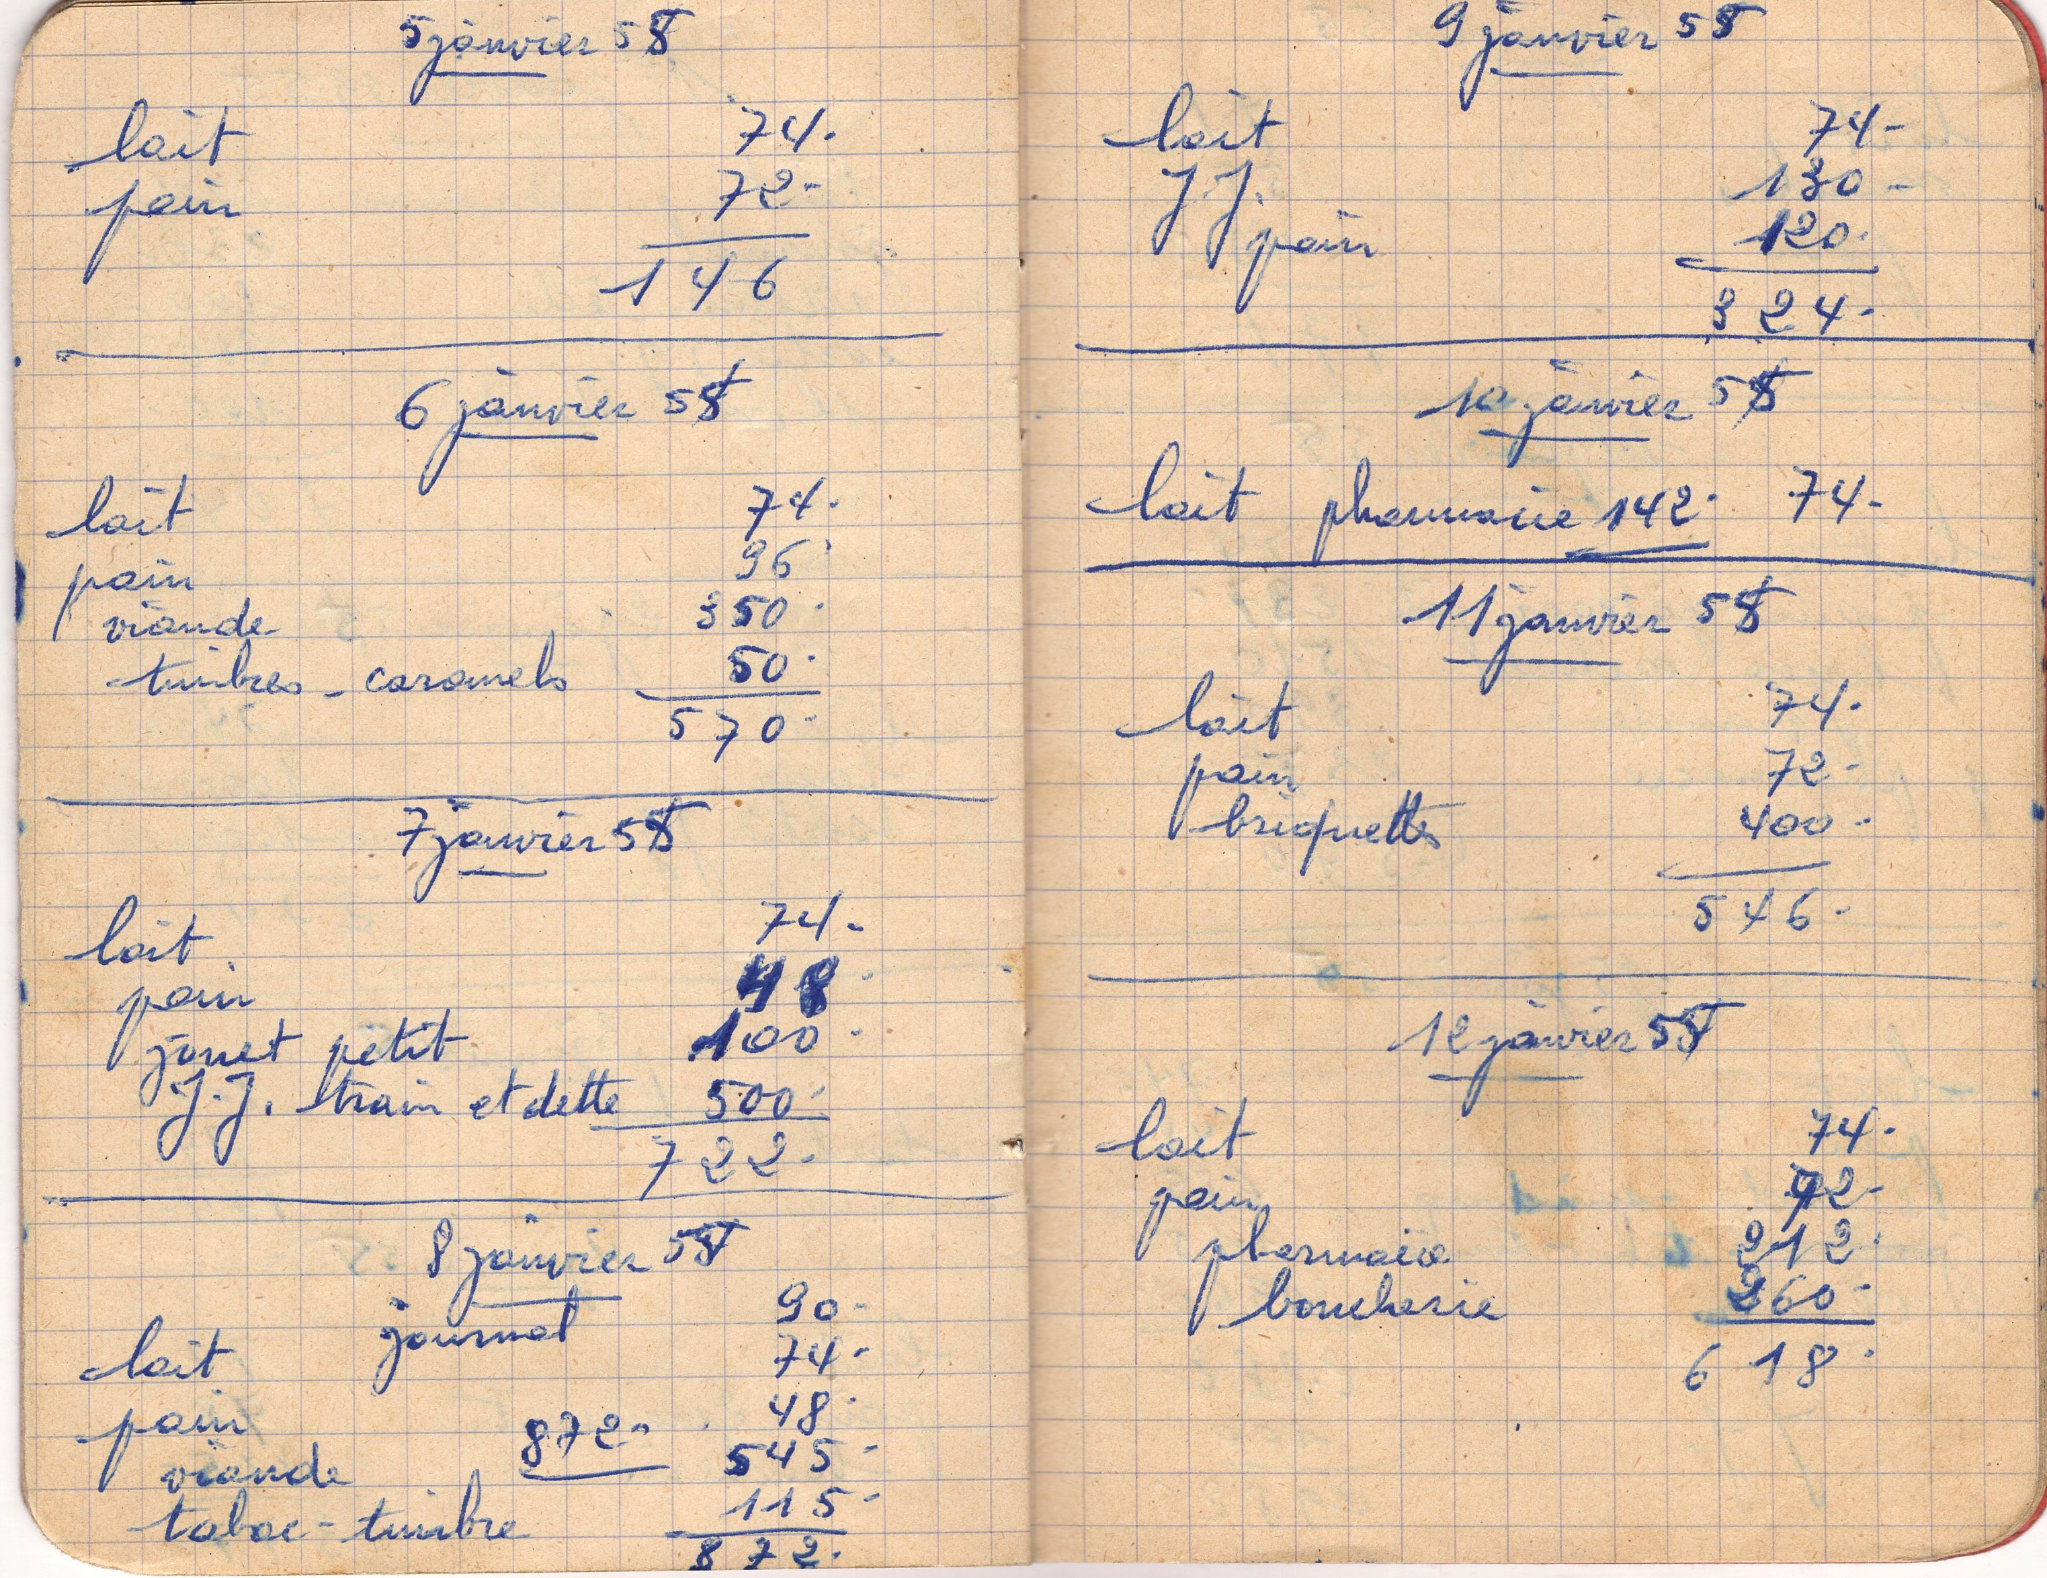 5 janvier 55
lait 74.
pain 72.
146
6 janvier 55
lait 74.
pain 96
viande 350.
timbres - caramels 50.
570.
7 janvier 55
lait 74.
pain 48.
jouet petit 100.
J.J. train et dette 500.
722.
8 janvier 55
journal 90.
lait 74.
pain 48.
872.
viande 545.
tabac - timbre 115.
872.
9 janvier 55
lait 74.
J.J. 130.
pain 120.
324.
10 janvier 55
lait pharmacie 142. 74.
11 janvier 55
lait 74.
pain 72.
briquettes 400.
546.
12 janvier 55
lait 74.
pain 72.
pharmacie 212.
boucherie 260.
618.